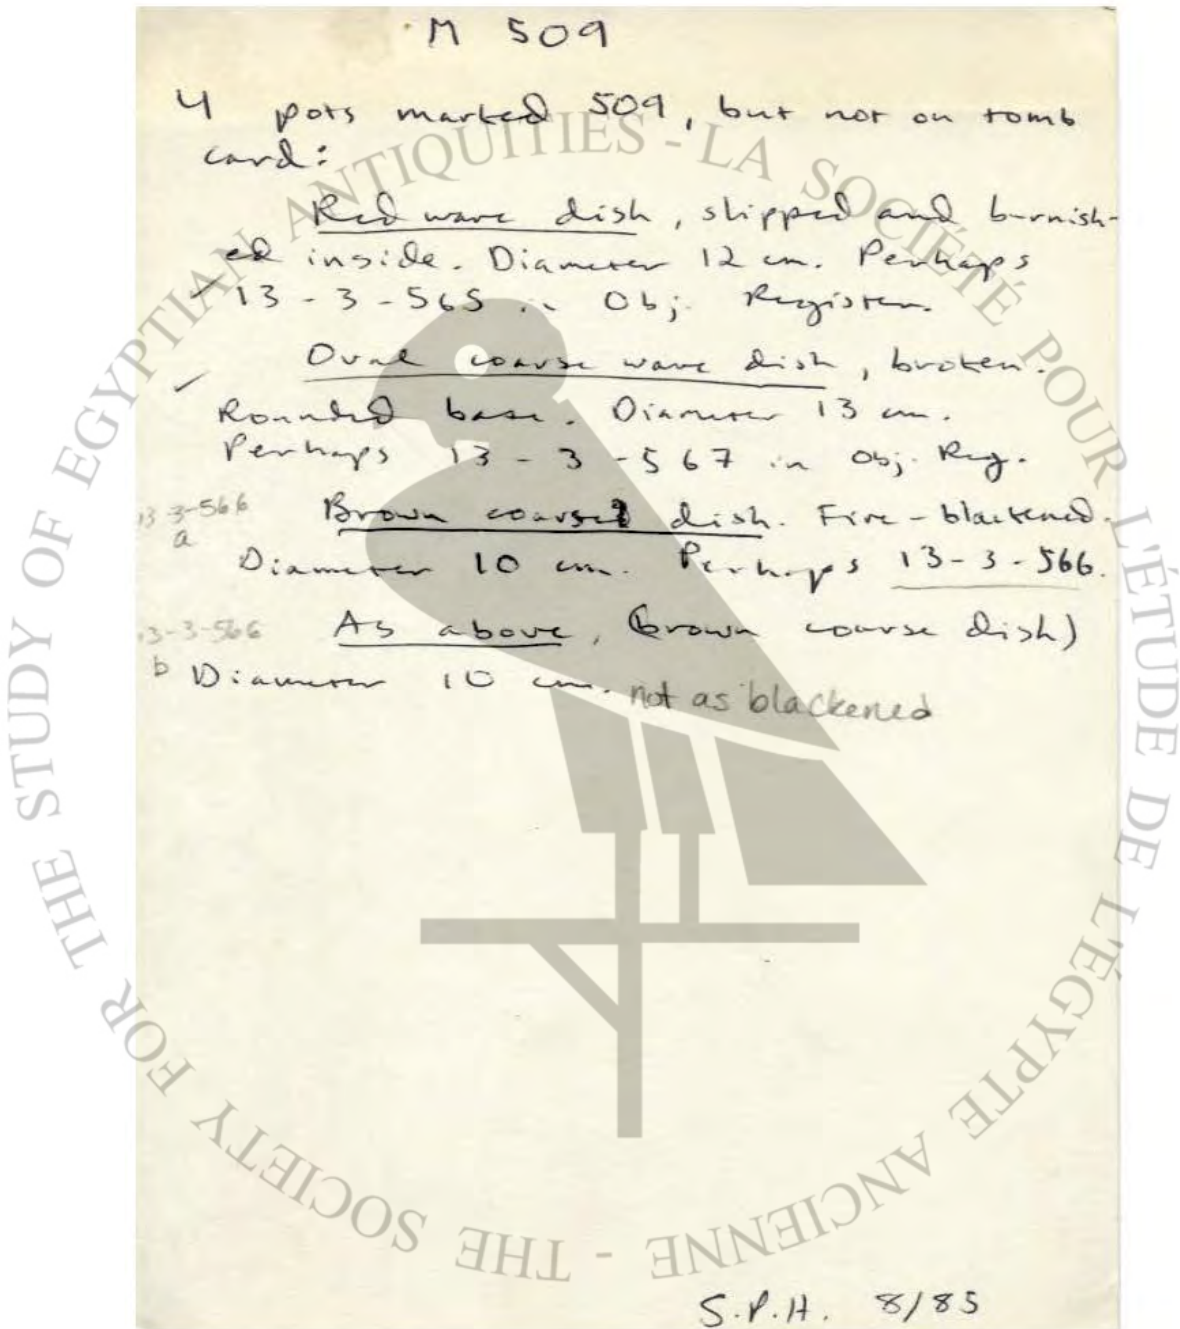 M 509
4 pots marked 509, but not on tomb
card:
Red ware dish, slipped and burnish-
ed inside. Diameter 12 cm. Perhaps
13-3-565 in Obj. Register.
Oval coarse ware dish, broken.
Rounded base. Diameter 13 cm.
Perhaps 13-3-567 in Obj. Reg.
13-3-566
a
Brown coarse dish. Fire-blackened.
Diameter 10 cm. Perhaps 13-3-566.
13-3-566
b
As above, (brown coarse dish)
Diameter 10 cm. not as blackened
S.P.H. 8/85
THE SOCIETY FOR THE STUDY OF EGYPTIAN ANTIQUITIES - LA SOCIÉTÉ POUR L'ÉTUDE DE L'ÉGYPTE ANCIENNE -